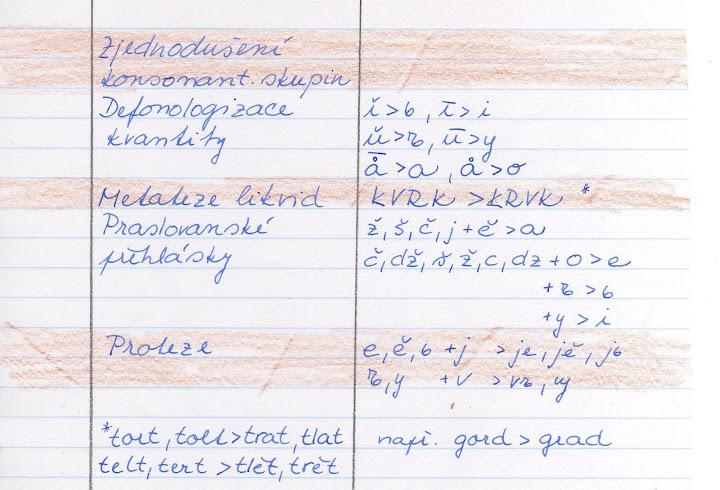 Zjednodušení
konsonant. skupin
Defonologizace ĭ > ь, ī > i
kvantity ŭ > ъ, ū > y
å̄ > a, å > o
Metateze likvid KVRK > KRVK *
Praslovanské ž, š, č, j + ě > a
přehlásky č, dž, š, ž, c, dz + o > e
+ ъ > ь
+ y > i
Proteze e, ě, ь + j > je, jě, jь
ъ, y + v > vъ, vy
*tort, tolt > trat, tlat např. gord > grad
telt, tert > tlět, trět